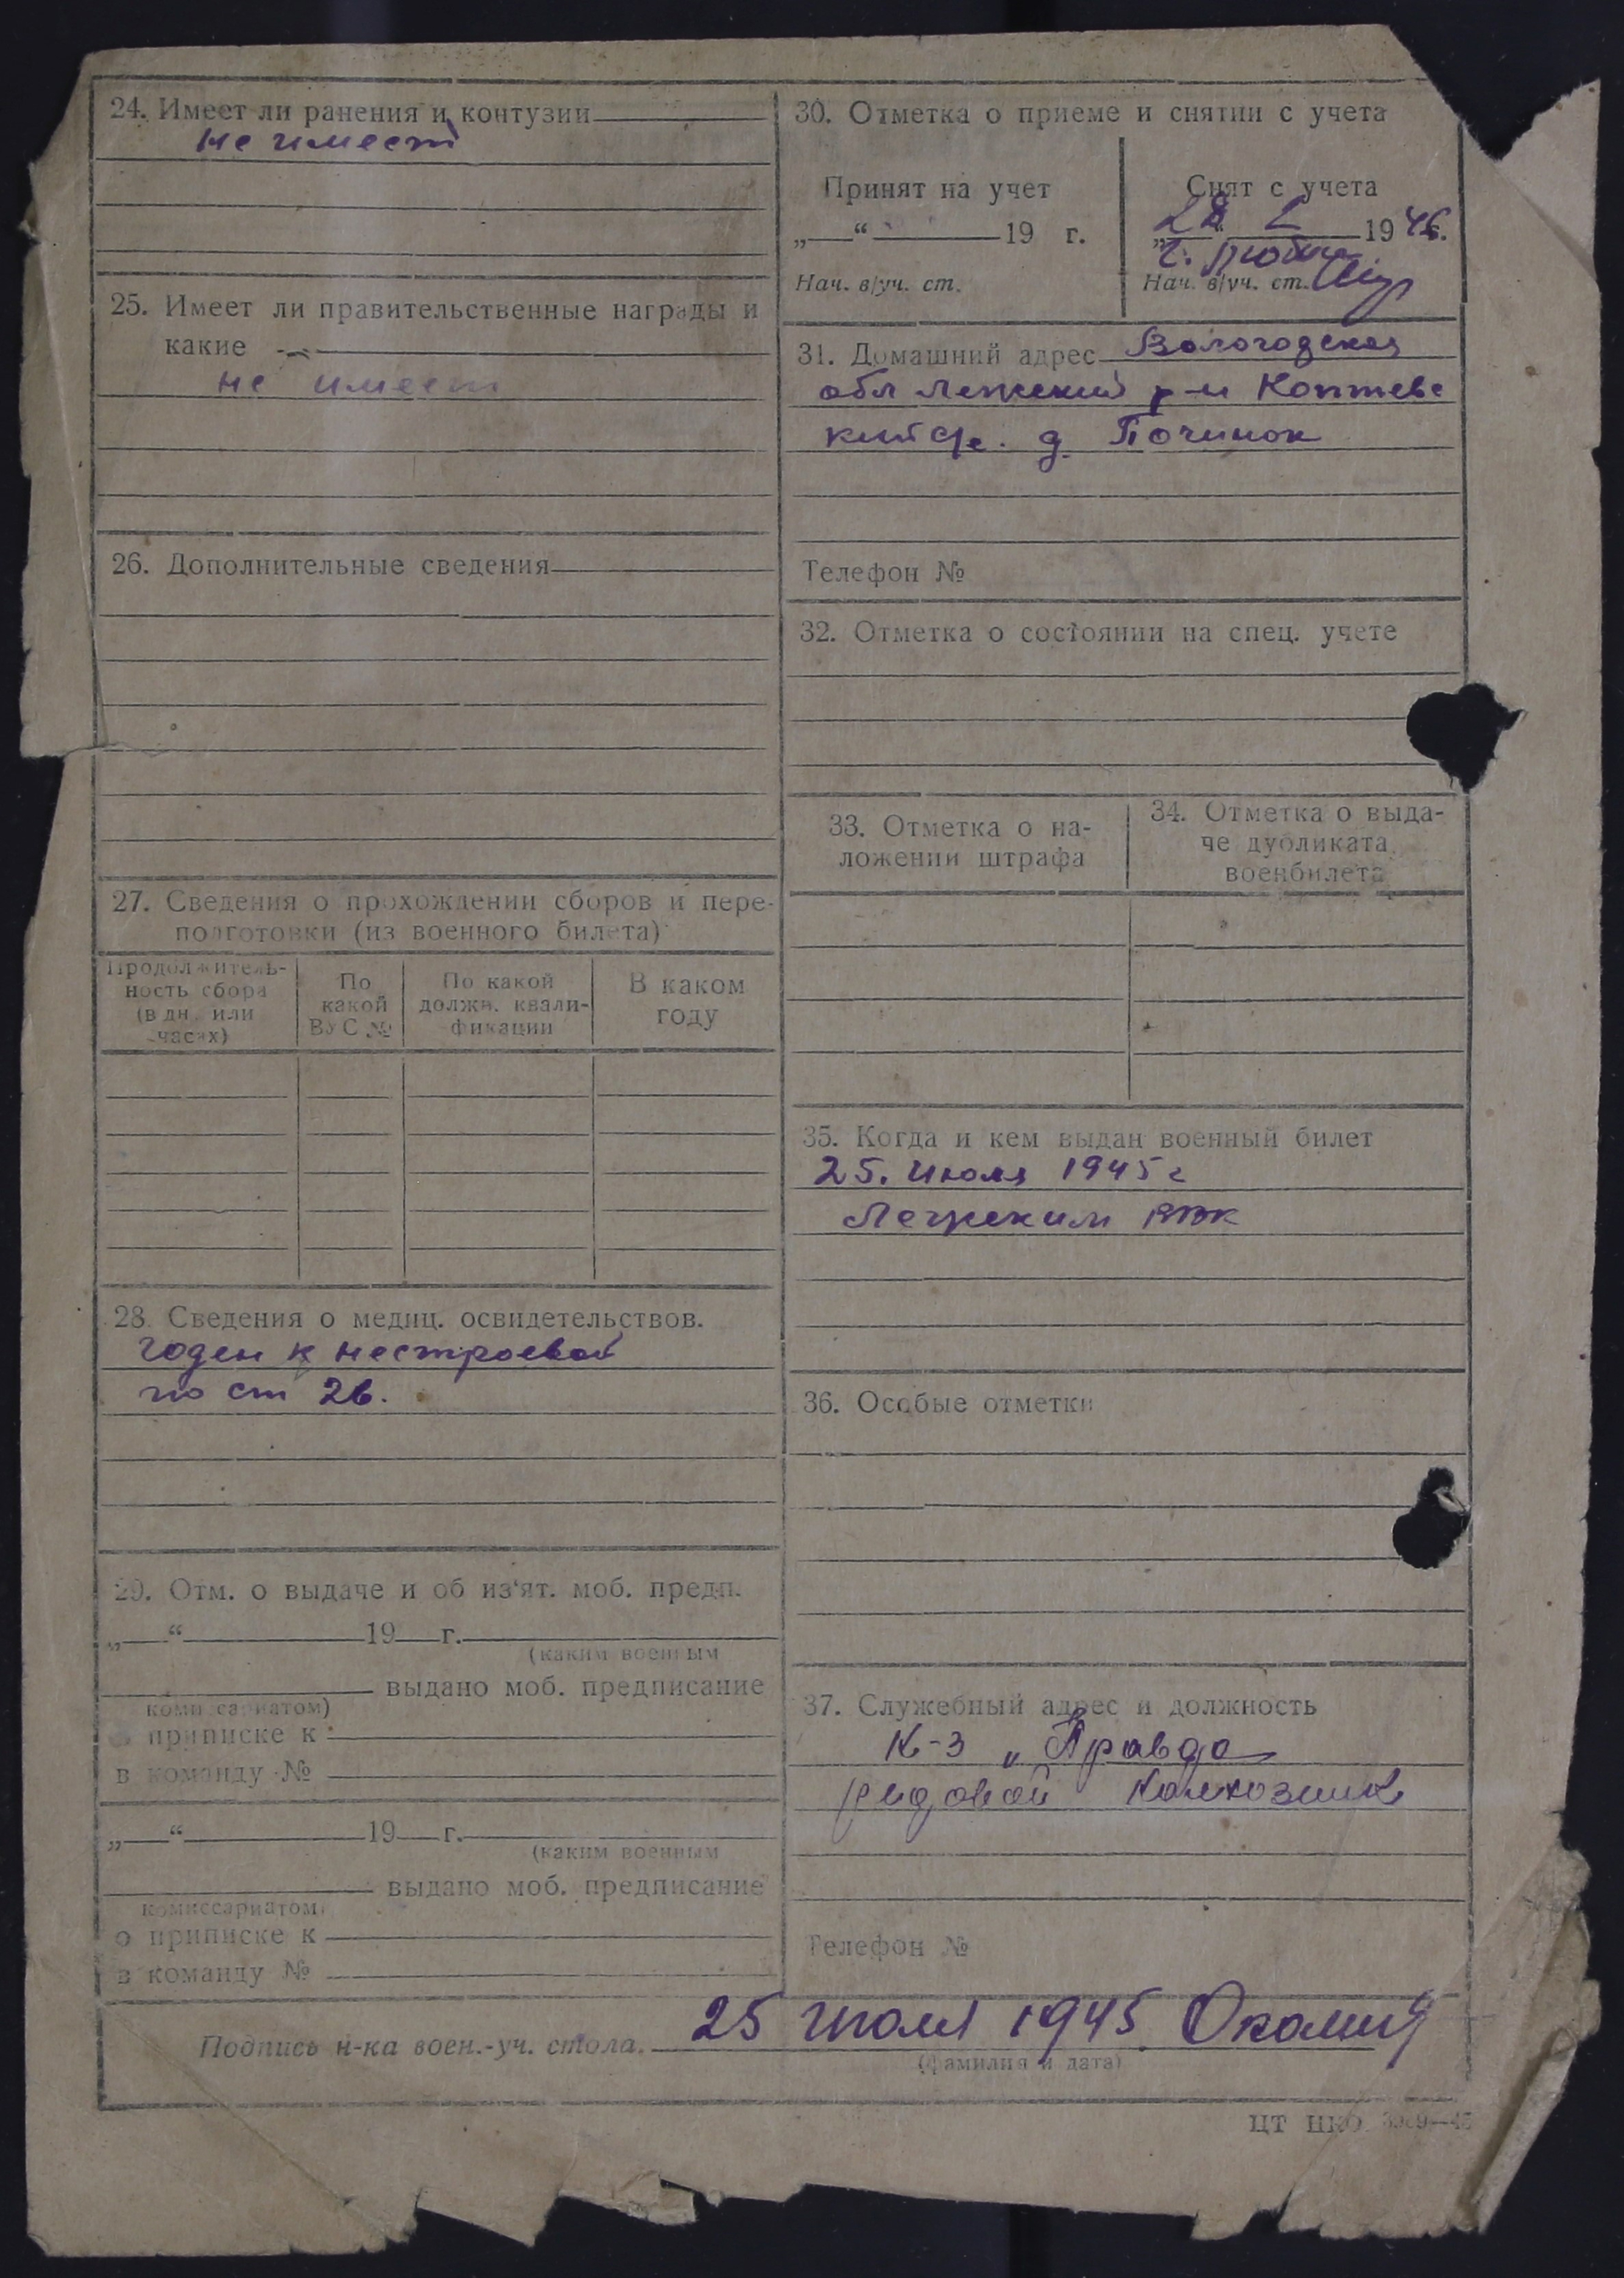 24. Имеет ли ранения и контузии
не имеет
25. Имеет ли правительственные награды и
какие
не имеет
26. Дополнительные сведения
27. Сведения о прохождении сборов и пере-
подготовки (из военного билета)
Продолжитель-
ность сбора
(в дн. или
часах)
По
какой
ВУС №
По какой
должн. квали-
фикации
В каком
году
28. Сведения о медиц. освидетельствов.
годен к нестроевой
по ст 2б.
29. Отм. о выдаче и об из'ят. моб. предп.
„ “ 19 г.
(каким военным
выдано моб. предписание
комиссариатом)
о приписке к
в команду №
„ “ 19 г.
(каким военным
выдано моб. предписание
комиссариатом)
о приписке к
в команду №
30. Отметка о приеме и снятии с учета
Принят на учет
„ “ 19 г.
Нач. в/уч. ст.
Снят с учета
28 1946.
Нач. в/уч. ст.
31. Домашний адрес Вологодская
обл Лежский р-н Коптевс
кий с/с. д. Починок
Телефон №
32. Отметка о состоянии на спец. учете
33. Отметка о на-
ложении штрафа
34. Отметка о выда-
че дубликата
военбилета
35. Когда и кем выдан военный билет
25. Июля 1945 г
Лежским РВК
36. Особые отметки
37. Служебный адрес и должность
К-з „Правда
рядовой колхозник
Телефон №
Подпись н-ка воен.-уч. стола. 25 июля 1945
(фамилия и дата)
ЦТ НКО